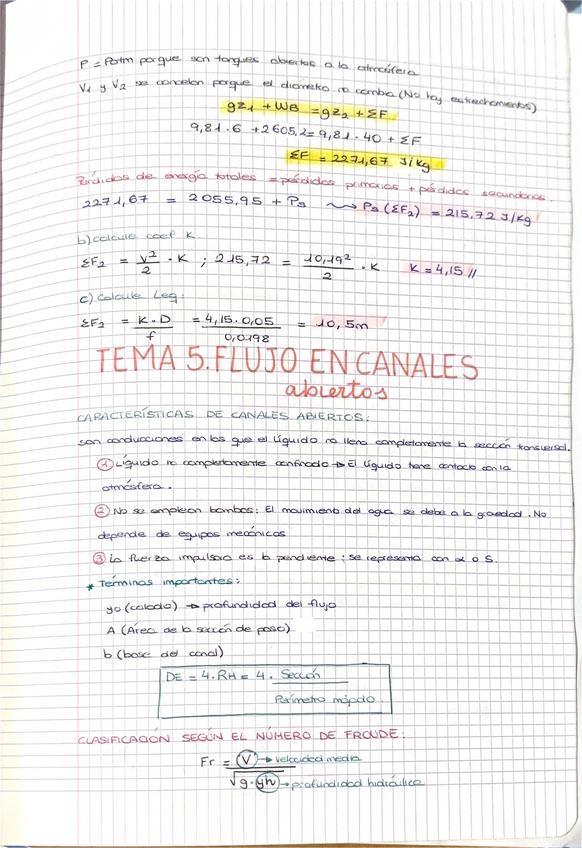 P = Patm porque son tanques abiertos a la atmósfera
V₁ y V₂ se cancelan porque el diámetro no cambia (No hay estrechamientos)
gz₁ + WB = gz₂ + ΣF
9,81 · 6 + 2605,2 = 9,81 · 40 + ΣF
ΣF = 2271,67 J/kg
Pérdidas de energía totales = pérdidas primarias + pérdidas secundarias.
2271,67 = 2055,95 + Ps ⇝ Ps (ΣF₂) = 215,72 J/kg
b) calcule coef K.
ΣF₂ = V²/2 · K ; 215,72 = 10,19²/2 · K K = 4,15 //
c) calcule Leq:
ΣF₂ = K·D/f = 4,15 · 0,05/0,0198 = 10,5m
TEMA 5. FLUJO EN CANALES
abiertos
CARACTERÍSTICAS DE CANALES ABIERTOS:
son conducciones en las que el líquido no llena completamente la sección transversal.
① Líquido no completamente confinado → El líquido tiene contacto con la
atmósfera.
② No se emplean bombas: El movimiento del agua se debe a la gravedad. No
depende de equipos mecánicos
③ La fuerza impulsora es la pendiente: se representa con α o S.
* Términos importantes:
yo (calado) → profundidad del flujo
A (Área de la sección de paso)
b (base del canal)
DE = 4 · RH = 4 · Sección
Perímetro mojado.
CLASIFICACIÓN SEGÚN EL NÚMERO DE FROUDE:
Fr = V → velocidad media
√g · yh → profundidad hidráulica